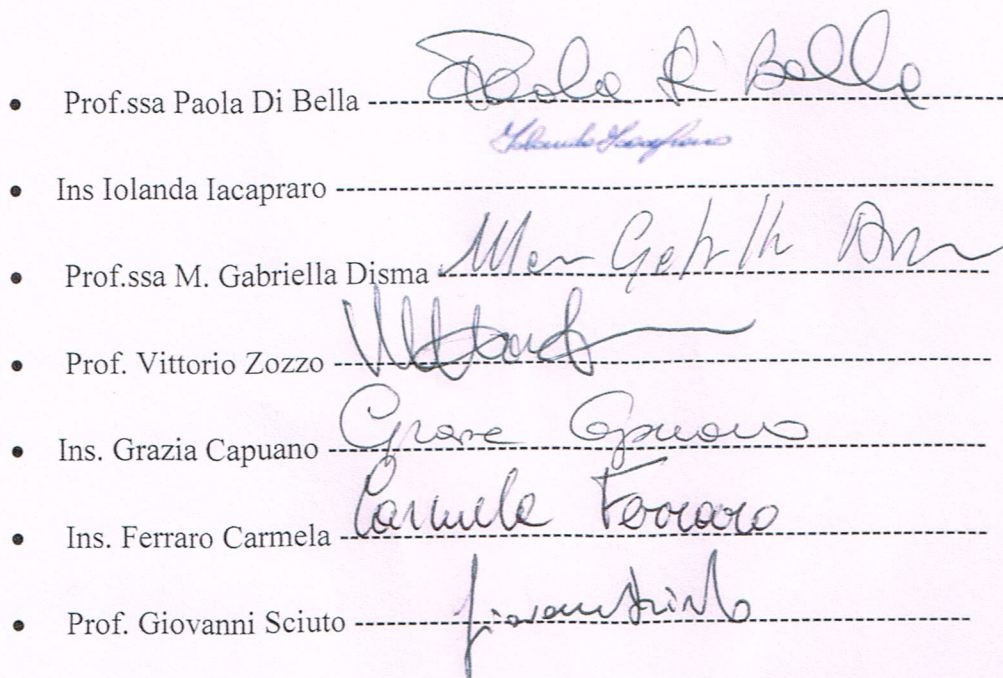 • Prof.ssa Paola Di Bella ---------- Paola Di Bella
• Ins Iolanda Iacapraro ----------
• Prof.ssa M. Gabriella Disma ----------
• Prof. Vittorio Zozzo ----------
• Ins. Grazia Capuano ---------- Capuano
• Ins. Ferraro Carmela ---------- Carmela Ferraro
• Prof. Giovanni Sciuto ----------